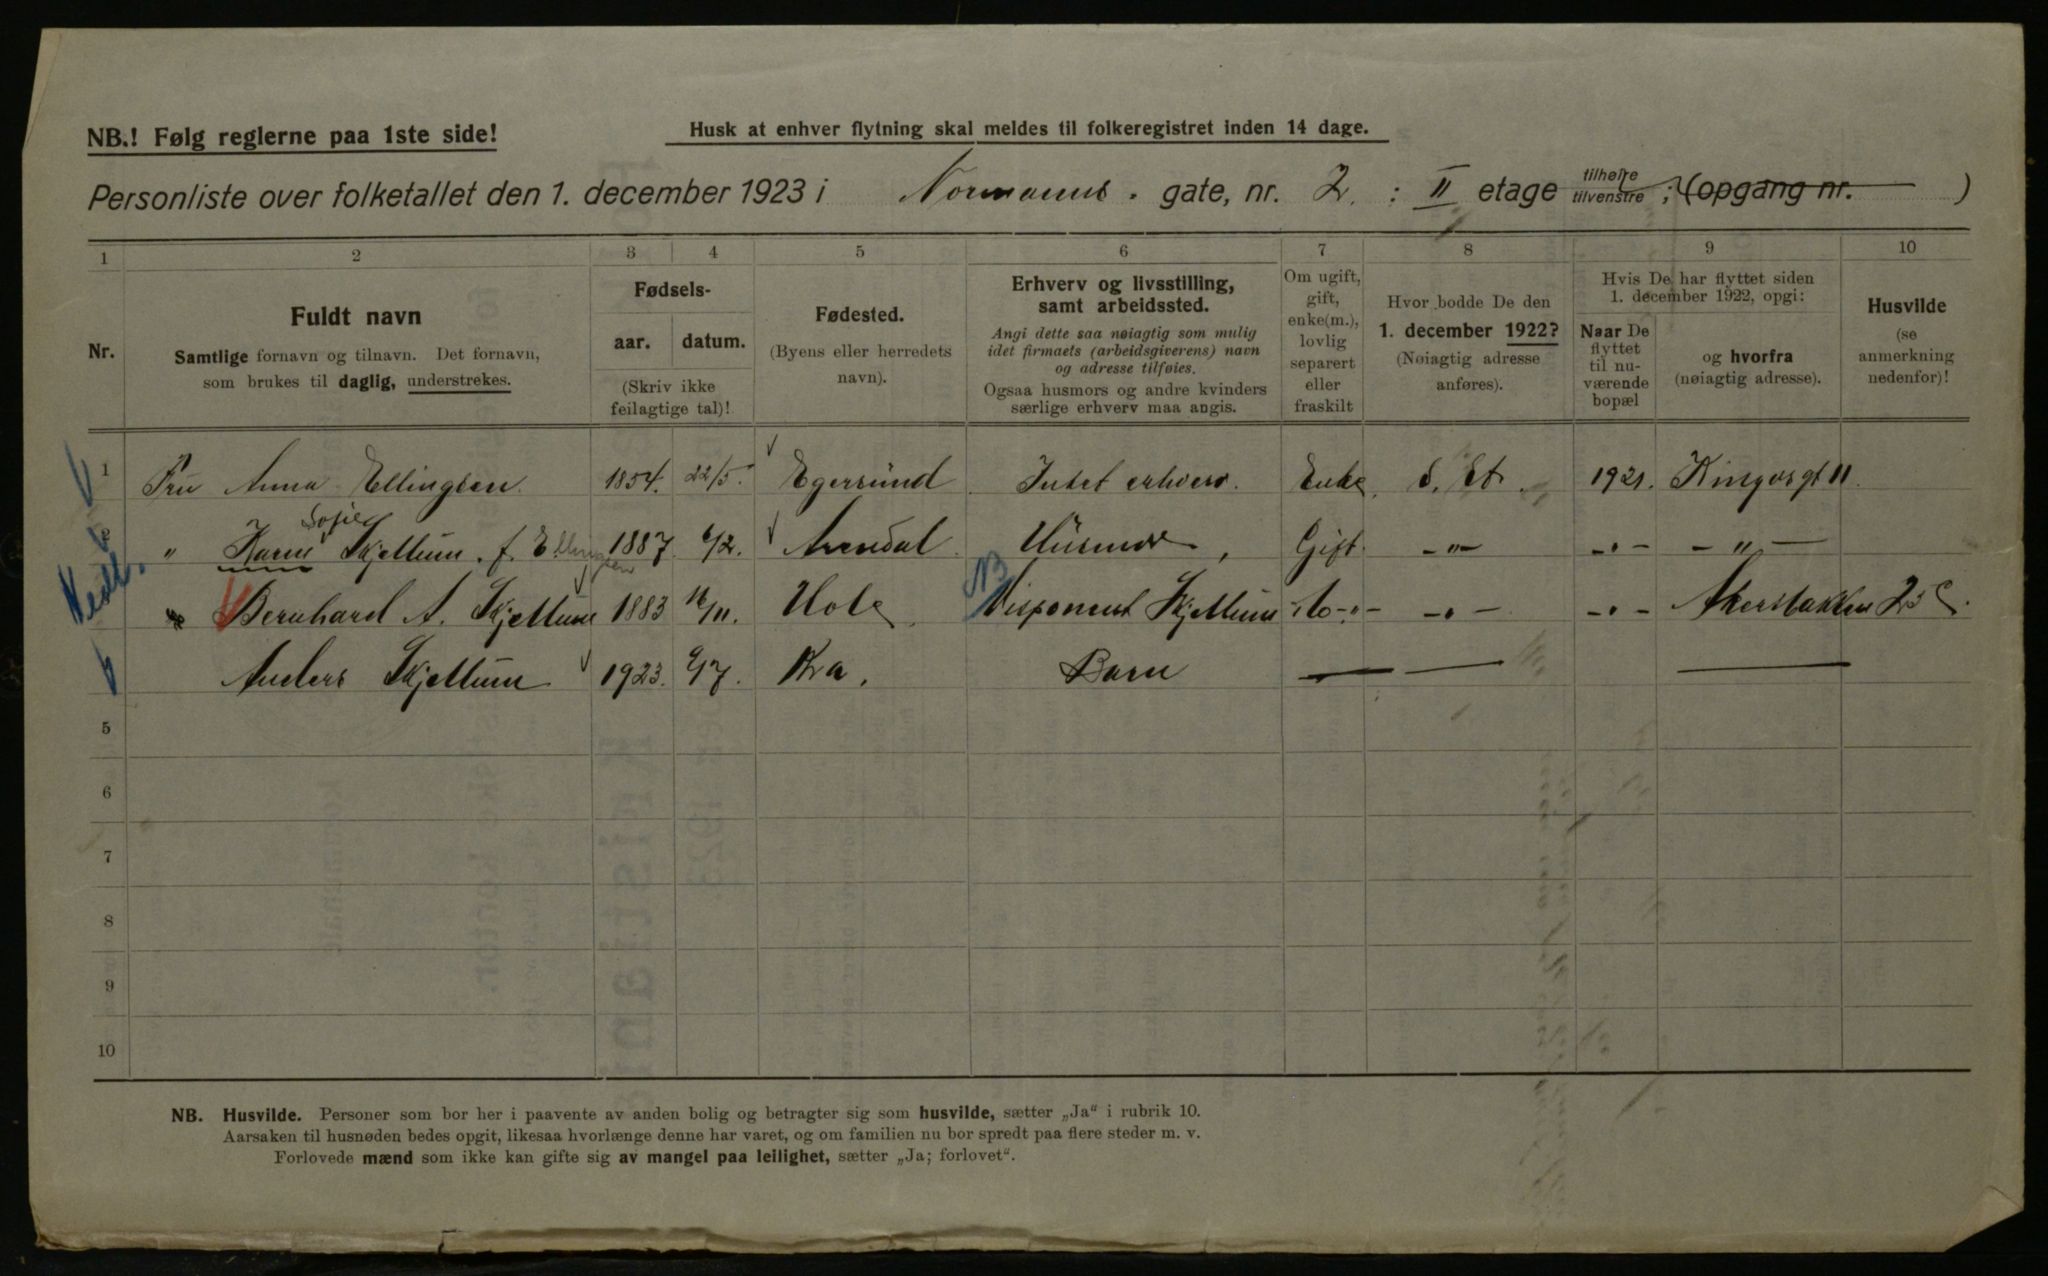 NB.! Følg reglerne paa 1ste side!
Husk at enhver flytning skal meldes til folkeregistret inden 14 dage.
Personliste over folketallet den 1. december 1923 i Normanns gate, nr. 2. : II etage tilhøire tilvenstre ; (opgang nr. )
1 2 3 4 5 6 7 8 9 10
Nr.
Fuldt navn
Samtlige fornavn og tilnavn. Det fornavn,
som brukes til daglig, understrekes.
Fødsels-
aar. datum.
(Skriv ikke
feilagtige tal)!
Fødested.
(Byens eller herredets
navn).
Erhverv og livsstilling,
samt arbeidssted.
Angi dette saa nøiagtig som mulig
idet firmaets (arbeidsgiverens) navn
og adresse tilføies.
Ogsaa husmors og andre kvinders
særlige erhverv maa angis.
Om ugift,
gift,
enke(m.),
lovlig
separert
eller
fraskilt
Hvor bodde De den
1. december 1922?
(Nøiagtig adresse
anføres).
Hvis De har flyttet siden
1. december 1922, opgi:
Naar De
flyttet
til nu-
værende
bopæl
og hvorfra
(nøiagtig adresse).
Husvilde
(se
anmerkning
nedenfor)!
1 Fru Anna Ellingsen 1854. 22/5. Egersund Intet erhverv. Enke. 1921. Kingosgt 11
2 " Karen Sofie Skjellum f. Ellingsen 1887 6/2. Arendal Husmor, Gift. -"- -"- -"-
" Bernhard A. Skjellum 1883 16/11. Hole NB Disponent Skjellum -"- -"- -"- Akersbakken 25
Anders Skjellum 1923. 9/7. Kra. Barn
5
6
7
8
9
10
NB. Husvilde. Personer som bor her i paavente av anden bolig og betragter sig som husvilde, sætter „Ja“ i rubrik 10.
Aarsaken til husnøden bedes opgit, likesaa hvorlænge denne har varet, og om familien nu bor spredt paa flere steder m. v.
Forlovede mænd som ikke kan gifte sig av mangel paa leilighet, sætter „Ja; forlovet“.